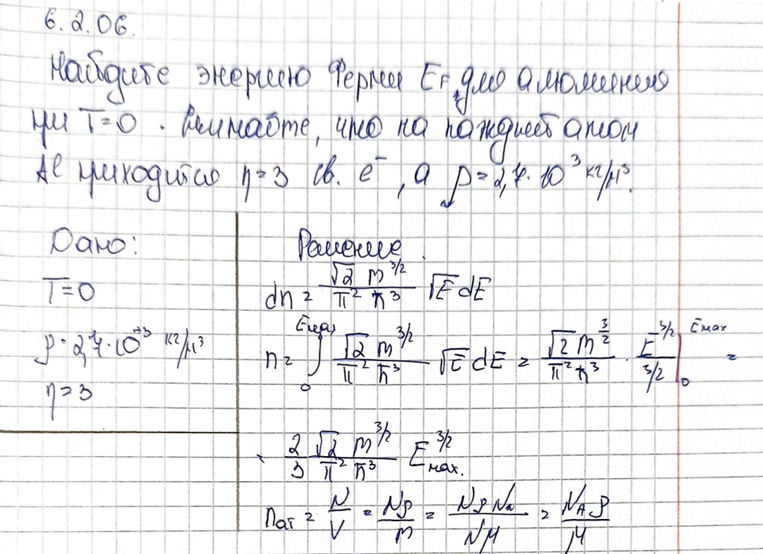 6.2.06.
Найдите энергию Ферми E_F для алюминия
при T=0. Считайте, что на каждый атом
Al приходится η=3 св. e⁻, а ρ=2,7·10³ кг/м³.
Дано:
T=0
ρ=2,7·10⁺³ кг/м³
η=3
Решение.
dn = \frac{\sqrt{2} m^{3/2}}{π² ħ³} \sqrt{E} dE
n = ∫_0^{Eмах} \frac{\sqrt{2} m^{3/2}}{π² ħ³} \sqrt{E} dE = \frac{\sqrt{2} m^{3/2}}{π² ħ³} · \frac{E^{3/2}}{3/2} |_0^{Eмах} =
\frac{2}{3} \frac{\sqrt{2} m^{3/2}}{π² ħ³} E_{мах.}^{3/2}
n_{ат} = \frac{N}{V} = \frac{Nρ}{m} = \frac{NρN_A}{Nμ} = \frac{N_A ρ}{μ}